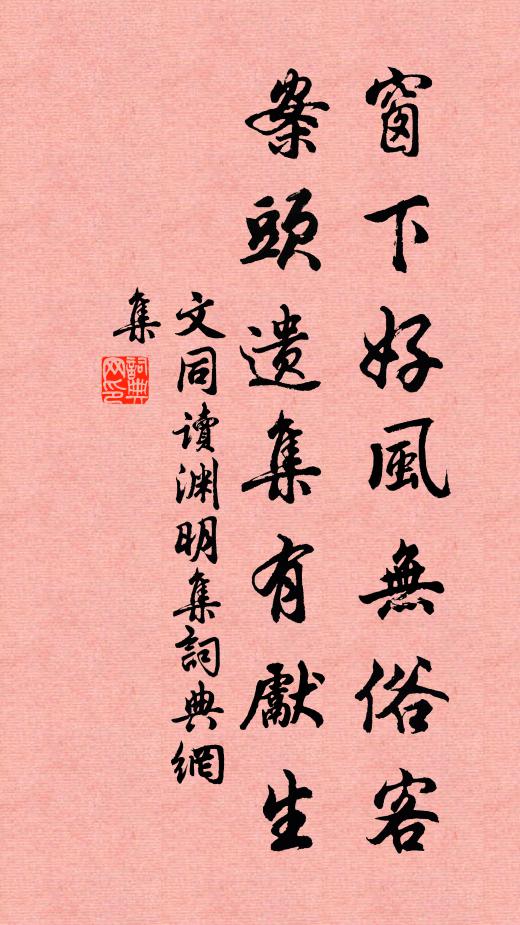 窗下好風無俗客
案頭遺集有獻生
文同讀渊明集詞典網
集
詞典
网印